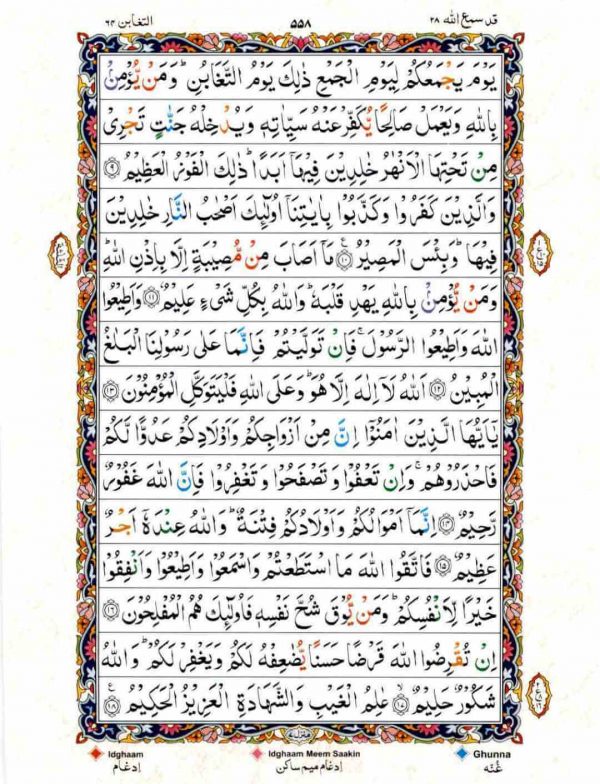 قد سمع الله ۲۸
۵۵۸
التغابن ۶۴
يَوْمَ يَجْمَعُكُمْ لِيَوْمِ الْجَمْعِ ذٰلِكَ يَوْمُ التَّغَابُنِ ؕ وَمَنْ يُّؤْمِنْۢ
بِاللّٰهِ وَيَعْمَلْ صَالِحًا يُّكَفِّرْ عَنْهُ سَيِّاٰتِهٖ وَيُدْخِلْهُ جَنّٰتٍ تَجْرِىْ
مِنْ تَحْتِهَا الْاَنْهٰرُ خٰلِدِيْنَ فِيْهَاۤ اَبَدًا ؕ ذٰلِكَ الْفَوْزُ الْعَظِيْمُ ۹
وَالَّذِيْنَ كَفَرُوْا وَكَذَّبُوْا بِاٰيٰتِنَاۤ اُولٰٓئِكَ اَصْحٰبُ النَّارِ خٰلِدِيْنَ
فِيْهَا ؕ وَبِئْسَ الْمَصِيْرُ ۱۰ مَاۤ اَصَابَ مِنْ مُّصِيْبَةٍ اِلَّا بِاِذْنِ اللّٰهِ ؕ
وَمَنْ يُّؤْمِنْۢ بِاللّٰهِ يَهْدِ قَلْبَهٗ ؕ وَاللّٰهُ بِكُلِّ شَىْءٍ عَلِيْمٌ ۱۱ وَاَطِيْعُوا
اللّٰهَ وَاَطِيْعُوا الرَّسُوْلَ ۚ فَاِنْ تَوَلَّيْتُمْ فَاِنَّمَا عَلٰى رَسُوْلِنَا الْبَلٰغُ
الْمُبِيْنُ ۱۲ اَللّٰهُ لَاۤ اِلٰهَ اِلَّا هُوَ ؕ وَعَلَى اللّٰهِ فَلْيَتَوَكَّلِ الْمُؤْمِنُوْنَ ۱۳
يٰۤاَيُّهَا الَّذِيْنَ اٰمَنُوْۤا اِنَّ مِنْ اَزْوَاجِكُمْ وَاَوْلَادِكُمْ عَدُوًّا لَّكُمْ
فَاحْذَرُوْهُمْ ۚ وَاِنْ تَعْفُوْا وَتَصْفَحُوْا وَتَغْفِرُوْا فَاِنَّ اللّٰهَ غَفُوْرٌ
رَّحِيْمٌ ۱۴ اِنَّمَاۤ اَمْوَالُكُمْ وَاَوْلَادُكُمْ فِتْنَةٌ ؕ وَاللّٰهُ عِنْدَهٗۤ اَجْرٌ
عَظِيْمٌ ۱۵ فَاتَّقُوا اللّٰهَ مَا اسْتَطَعْتُمْ وَاسْمَعُوْا وَاَطِيْعُوْا وَاَنْفِقُوْا
خَيْرًا لِّاَنْفُسِكُمْ ؕ وَمَنْ يُّوْقَ شُحَّ نَفْسِهٖ فَاُولٰٓئِكَ هُمُ الْمُفْلِحُوْنَ ۱۶
اِنْ تُقْرِضُوا اللّٰهَ قَرْضًا حَسَنًا يُّضٰعِفْهُ لَكُمْ وَيَغْفِرْ لَكُمْ ؕ وَاللّٰهُ
شَكُوْرٌ حَلِيْمٌ ۱۷ عٰلِمُ الْغَيْبِ وَالشَّهَادَةِ الْعَزِيْزُ الْحَكِيْمُ ۱۸
Idghaam
ادغام
Idghaam Meem Saakin
ادغام میم ساکن
Ghunna
غُنّه